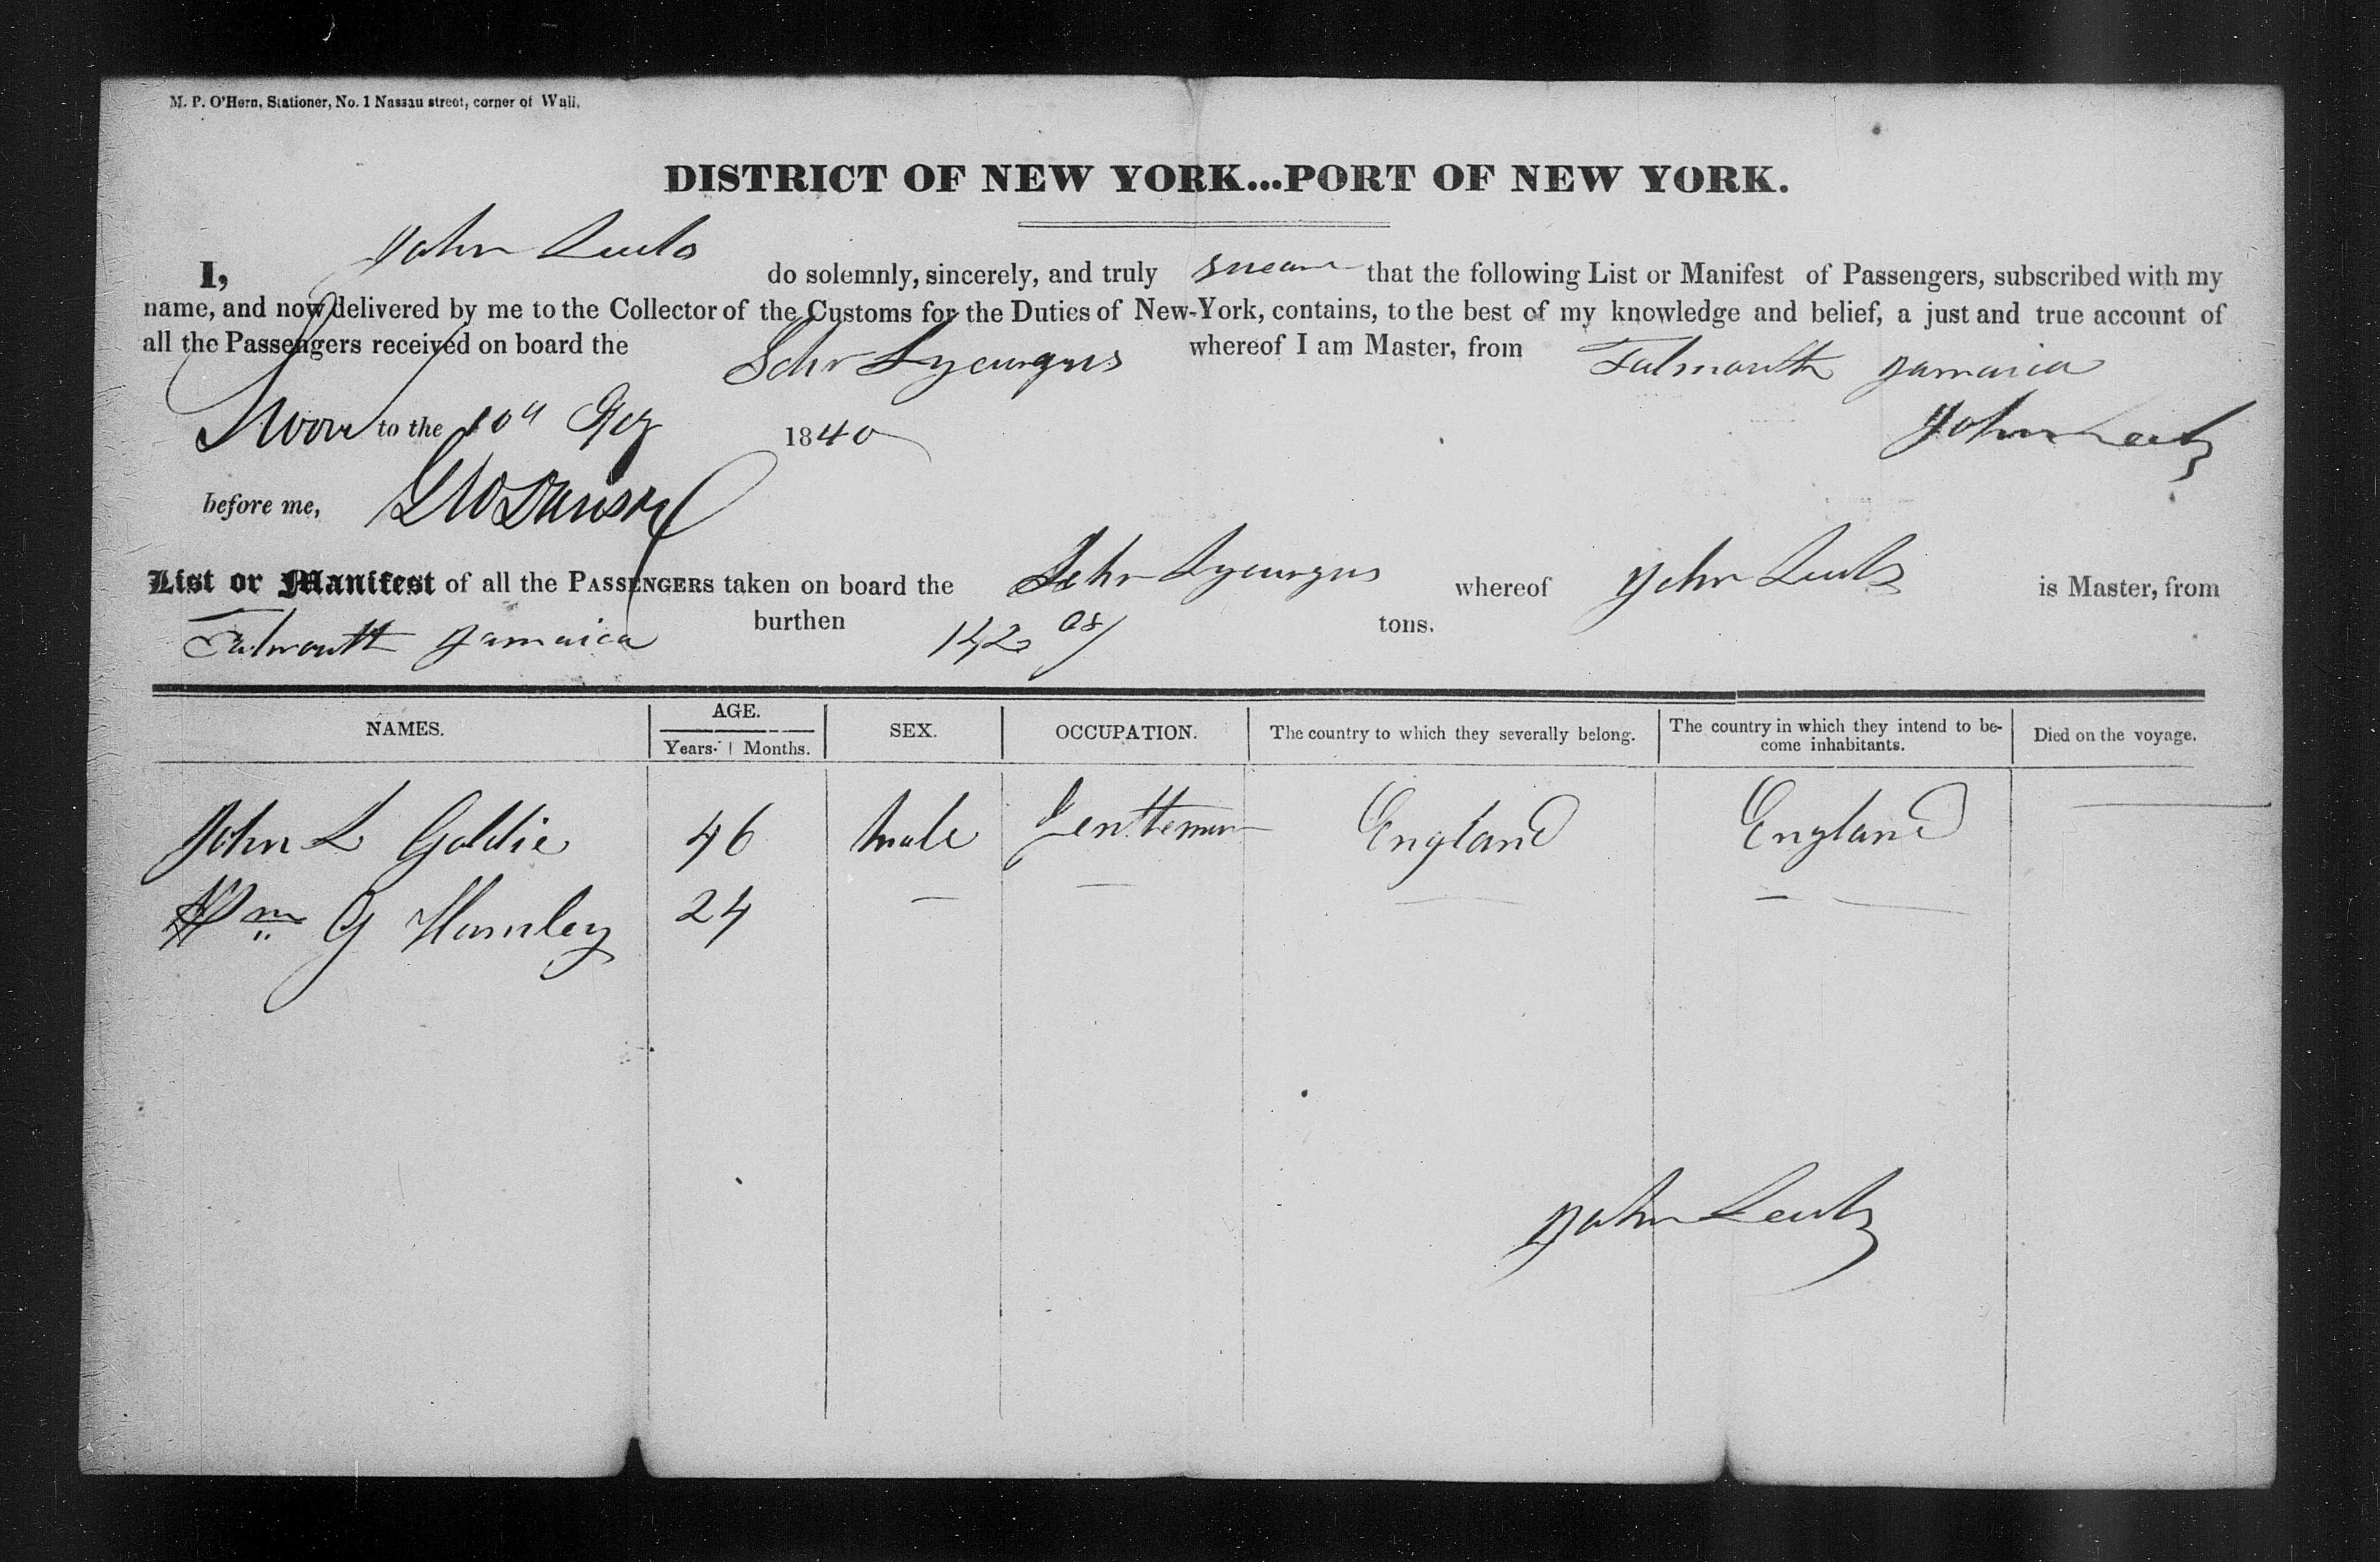 M. P. O'Hern, Stationer, No. 1 Nassau street, corner of Wall,
DISTRICT OF NEW YORK...PORT OF NEW YORK.
I, John do solemnly, sincerely, and truly swear that the following List or Manifest of Passengers, subscribed with my
name, and now delivered by me to the Collector of the Customs for the Duties of New-York, contains, to the best of my knowledge and belief, a just and true account of
all the Passengers received on board the Schr Lycurgus whereof I am Master, from Falmouth Jamaica
Sworn to the 10th 1840 John
before me,
List or Manifest of all the PASSENGERS taken on board the Schr Lycurgus whereof John is Master, from
Falmouth Jamaica burthen 142 08/ tons.
NAMES. AGE. SEX. OCCUPATION. The country to which they severally belong. The country in which they intend to be- Died on the voyage.
Years. Months. come inhabitants.
John L Goldie 46 Male Gentleman England England
Wm G Hamley 24
John